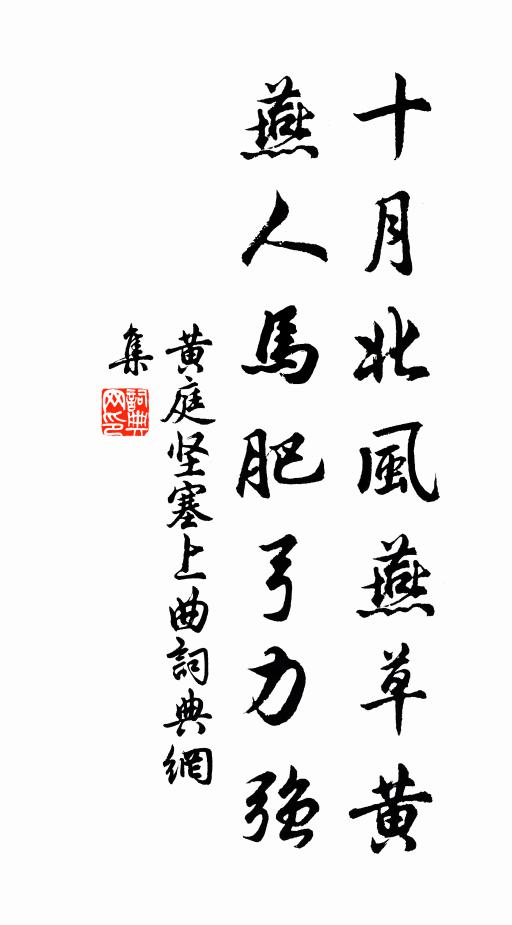 十月北風燕草黄
燕人馬肥弓力強
黄庭坚塞上曲詞典網
集
詞典
网印